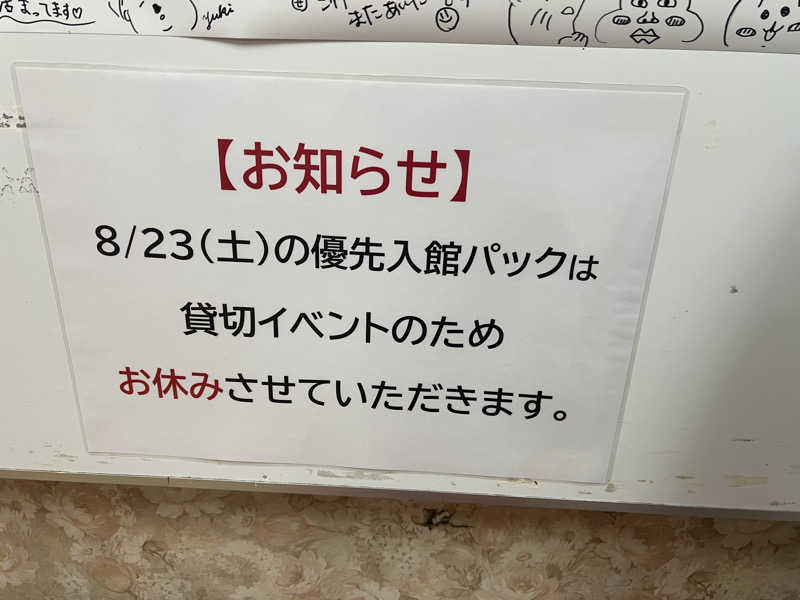 まってます♡
yuki
またあいたい
【お知らせ】
8/23(土)の優先入館パックは
貸切イベントのため
お休みさせていただきます。